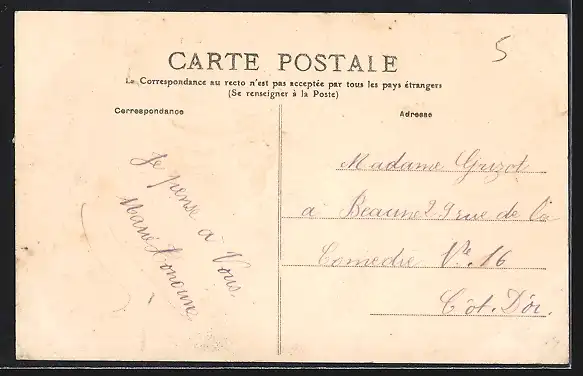 CARTE POSTALE
5
La Correspondance au recto n'est pas acceptée par tous les pays étrangers
(Se renseigner à la Poste)
Correspondance
Adresse
Je pense à Vous
Marie
Madame Guzot
a Beaune 29 rue de la
Comedie Ve. 16
Côt. D'or.